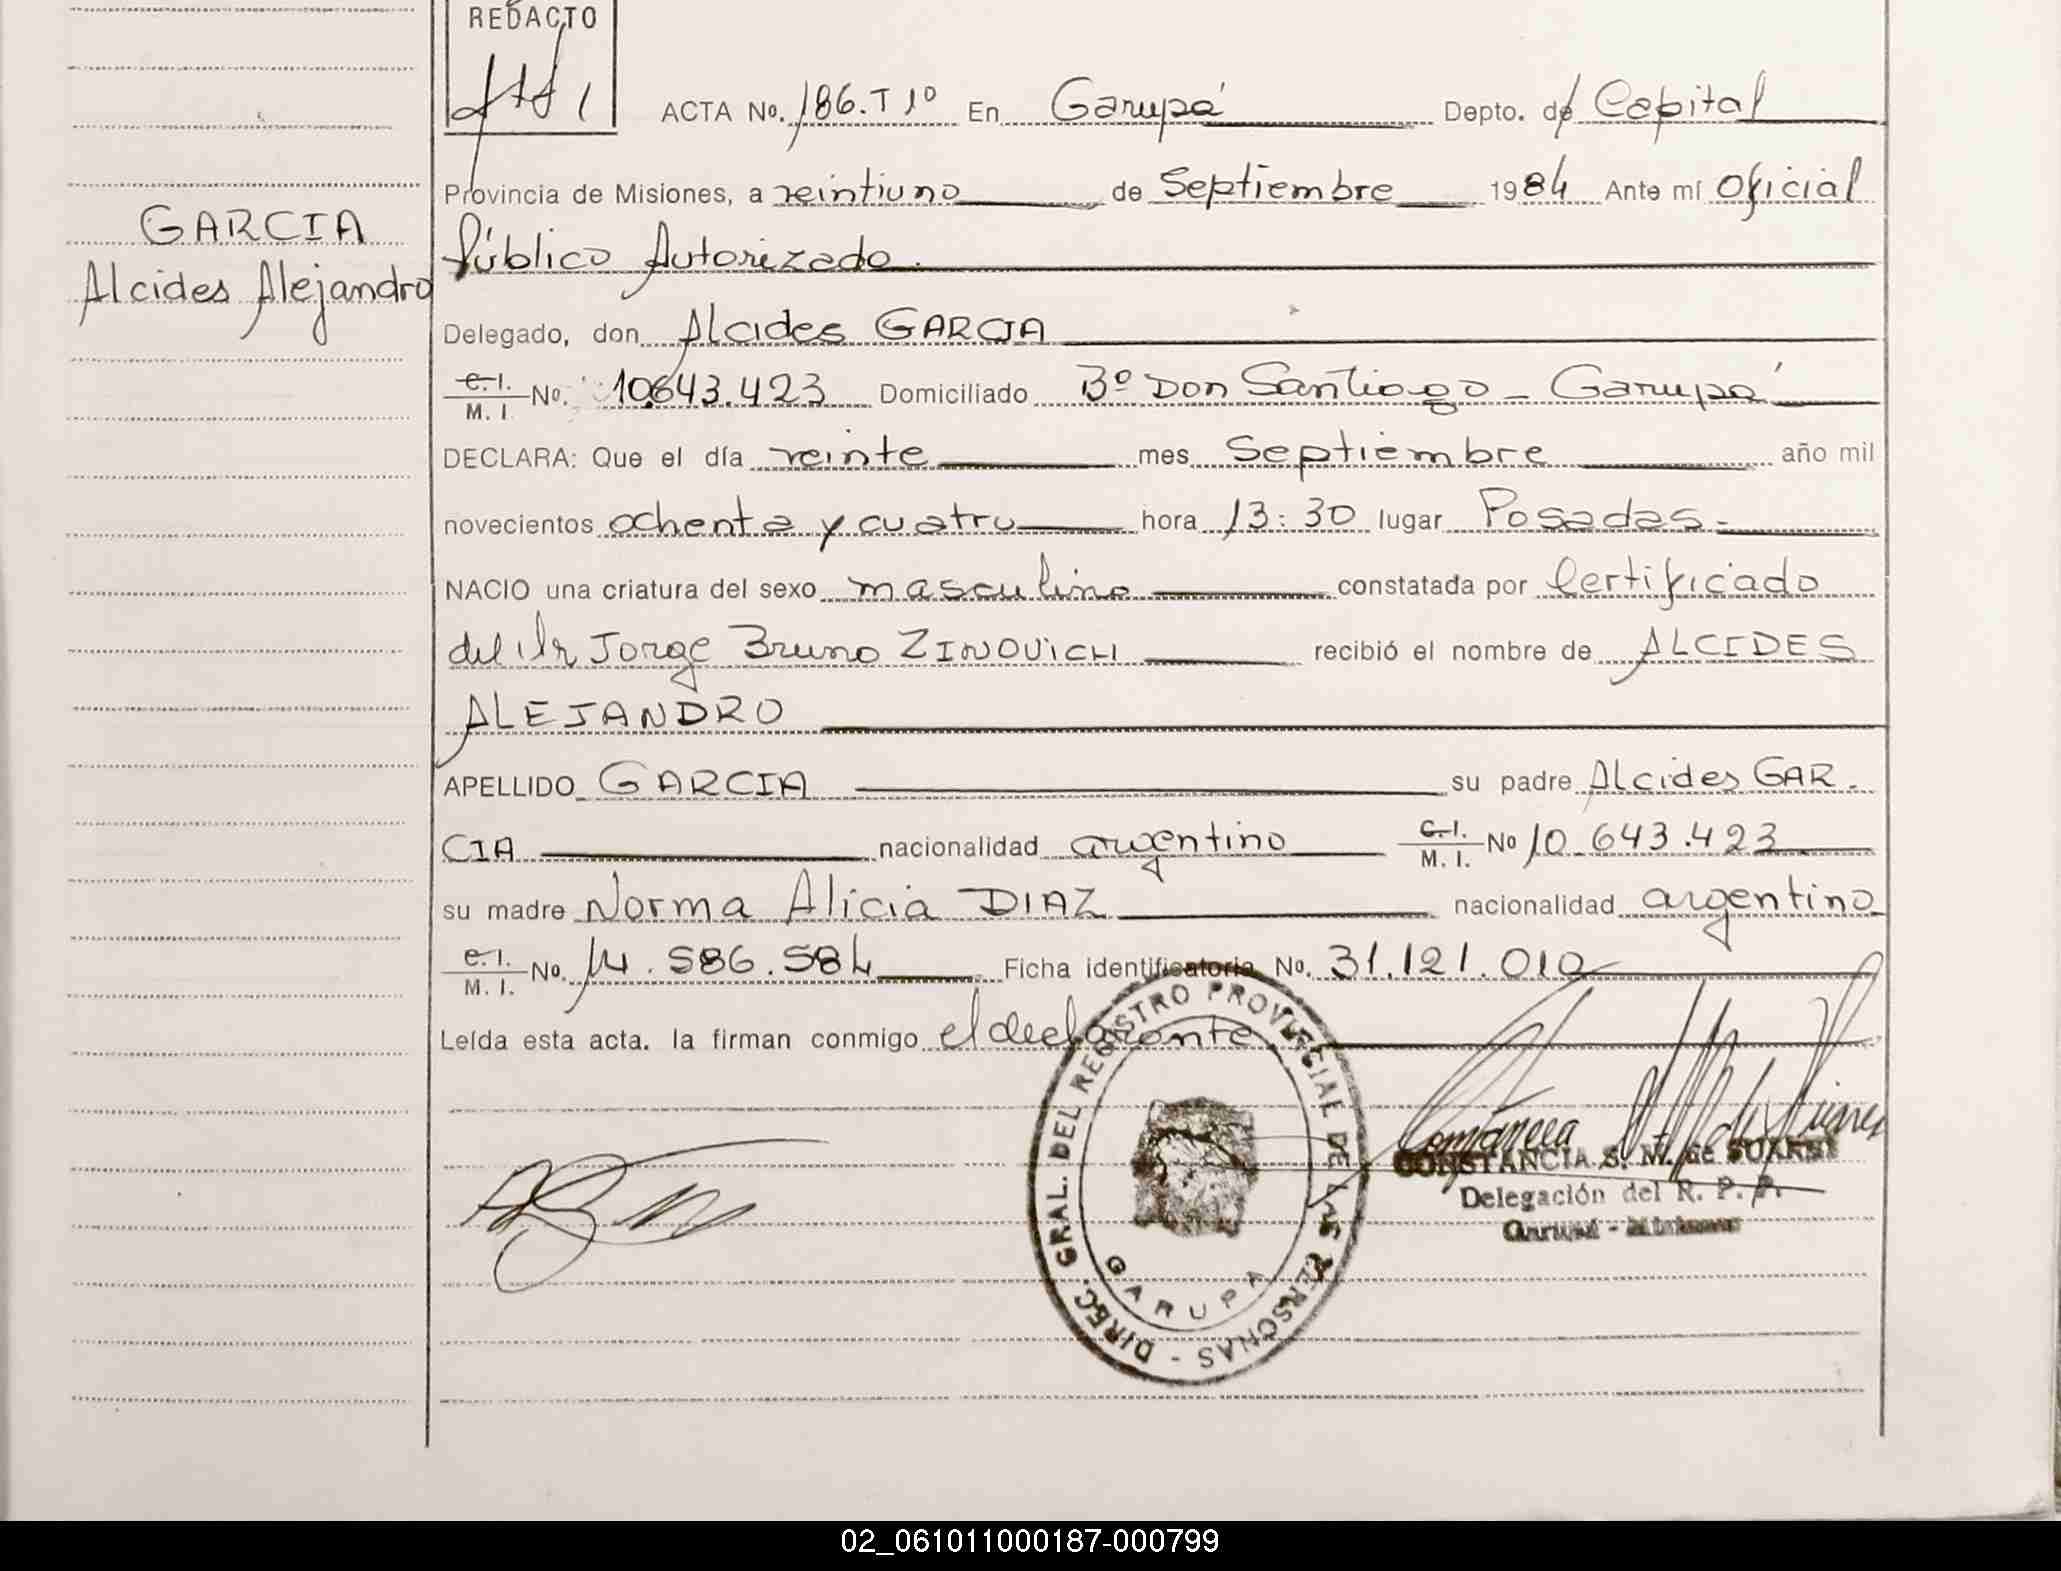 REDACTO
ACTA No. 186. T 1º En Garupá Depto. de Capital
Provincia de Misiones, a veintiuno de Septiembre 1984 Ante mí Oficial
Público Autorizado.
GARCIA
Alcides Alejandro
Delegado, don Alcides GARCIA
C. I. M. I. No. 10.643.423 Domiciliado Bº Don Santiago - Garupá
DECLARA: Que el día veinte mes Septiembre año mil
novecientos ochenta y cuatro hora 13:30 lugar Posadas.
NACIO una criatura del sexo masculino constatada por Certificado
del Dr Jorge Bruno ZINOVICH recibió el nombre de ALCIDES
ALEJANDRO
APELLIDO GARCIA su padre Alcides GAR-
CIA nacionalidad argentino C. I. M. I. No 10.643.423
su madre Norma Alicia DIAZ nacionalidad argentino
C. I. M. I. No. 14.586.584 Ficha identificatoria No. 31.121.010
Leída esta acta. la firman conmigo el declarante
DIREC. GRAL. DEL REGISTRO PROVINCIAL DE LAS PERSONAS -
GARUPA
CONSTANCIA S. M. de SUAREZ
Delegación del R. P. P.
Garupá - Misiones
02_061011000187-000799